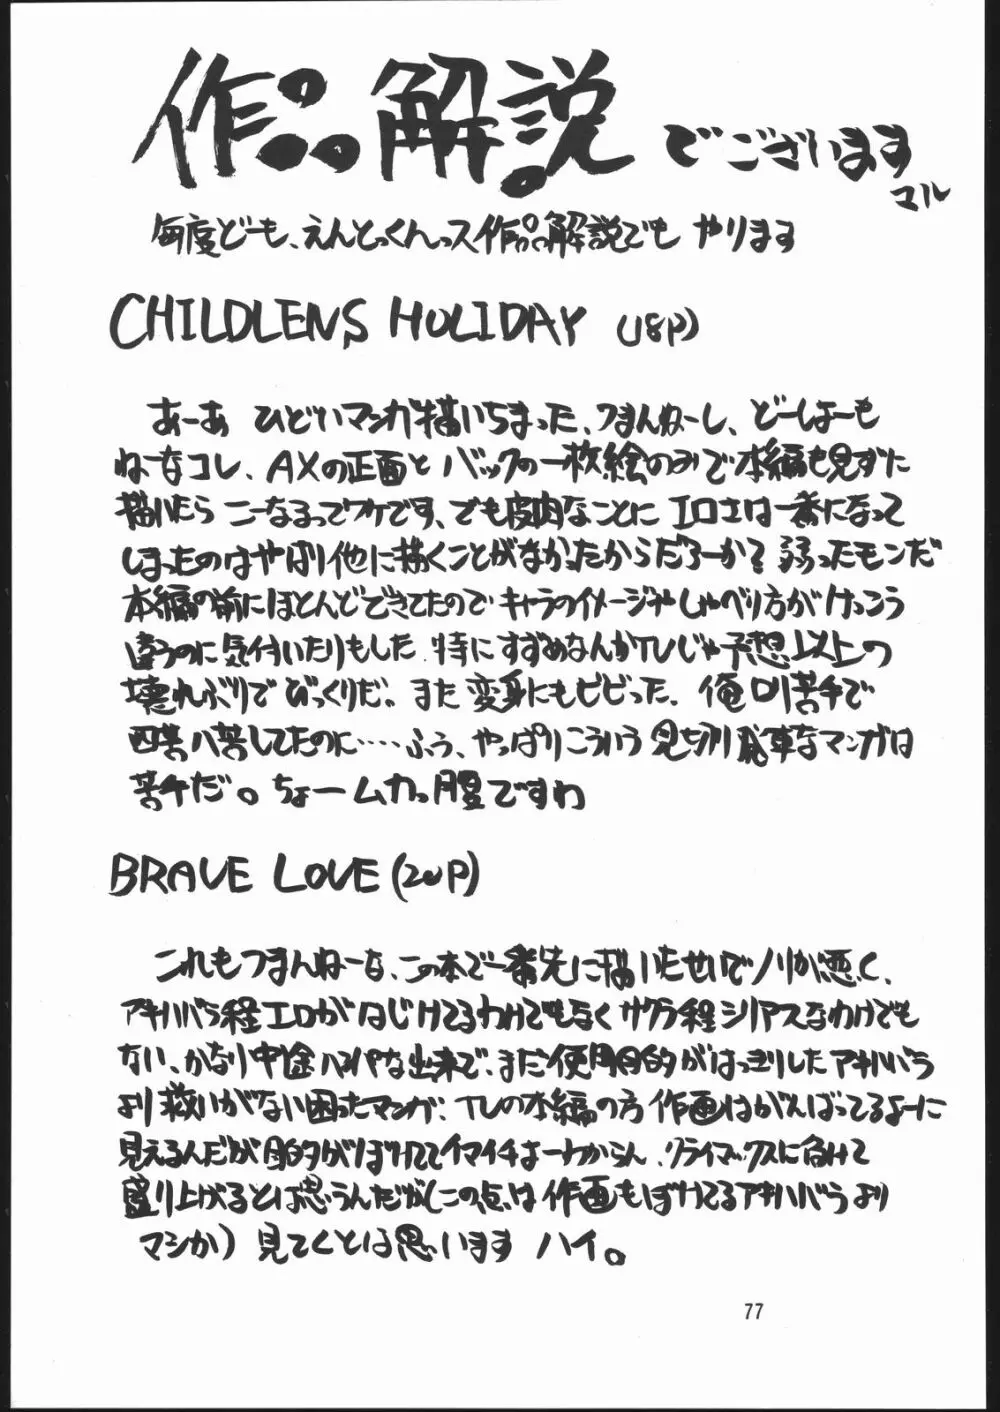 作品解説でございます
マル
毎度どーも、えんとっくんっス作品解説でも やります
CHILDLENS HOLIDAY (18P)
あーあ ひどいマンガ描いちまった、つまんねーし、どーしよーも
ねーなコレ、AXの正面とバックの一枚絵のみで本編も見ずに
描いたら こーなるってワケです、でも皮肉なことに エロさは一番になって
しまったのはやはり他に描くことがなかったからだろーか?弱ったモンだ
本編の前にほとんどできてたので キャラのイメージやしゃべり方がけっこう
違うのに気付いたりもした 特にすずめなんかTVじゃ予想以上の
壊れぶりでびっくりだ。また変身にもビビった。俺ロリ苦手で
四苦八苦してたのに……ふう、やっぱりこういう見切り発車なマンガは
苦手だ。ちょームカっ腹ですわ
BRAVE LOVE (20P)
これもつまんねーな、この本で一番先に描いたせいでノリが悪く、
アキハバラ程エロがはじけてるわけでもなく サクラ程シリアスなわけでも
ない、かなり中途ハンパな出来で、まだ使用目的がはっきりしたアキハバラ
より救いがない困ったマンガ、TVの本編の方 作画はがんばってるよーに
見えるんだが目的がぼけててイマイチよーわからん、クライマックスに向けて
盛り上げるとは思うんだが(この点は作画もぼけてるアキハバラより
マシか) 見てくとは思います ハイ。
77